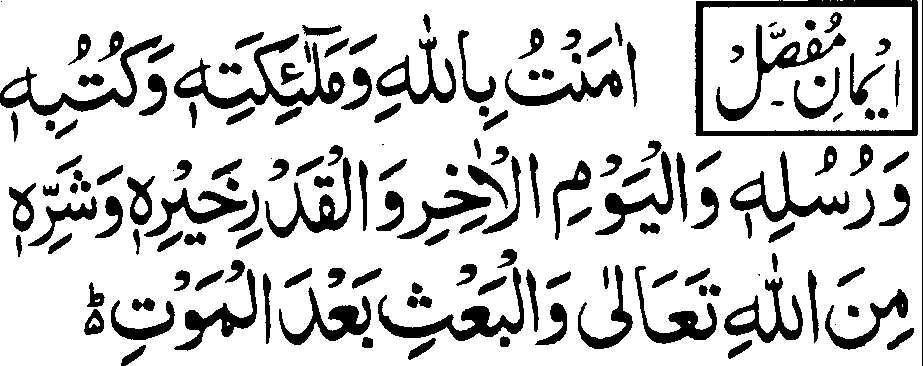 ایمانِ مُفصَّلْ
اٰمَنْتُ بِاللّٰهِ وَمَلٰٓئِكَتِهٖ وَكُتُبِهٖ
وَرُسُلِهٖ وَالْيَوْمِ الْاٰخِرِ وَالْقَدْرِ خَيْرِهٖ وَشَرِّهٖ
مِنَ اللّٰهِ تَعَالٰى وَالْبَعْثِ بَعْدَ الْمَوْتِ ؕ